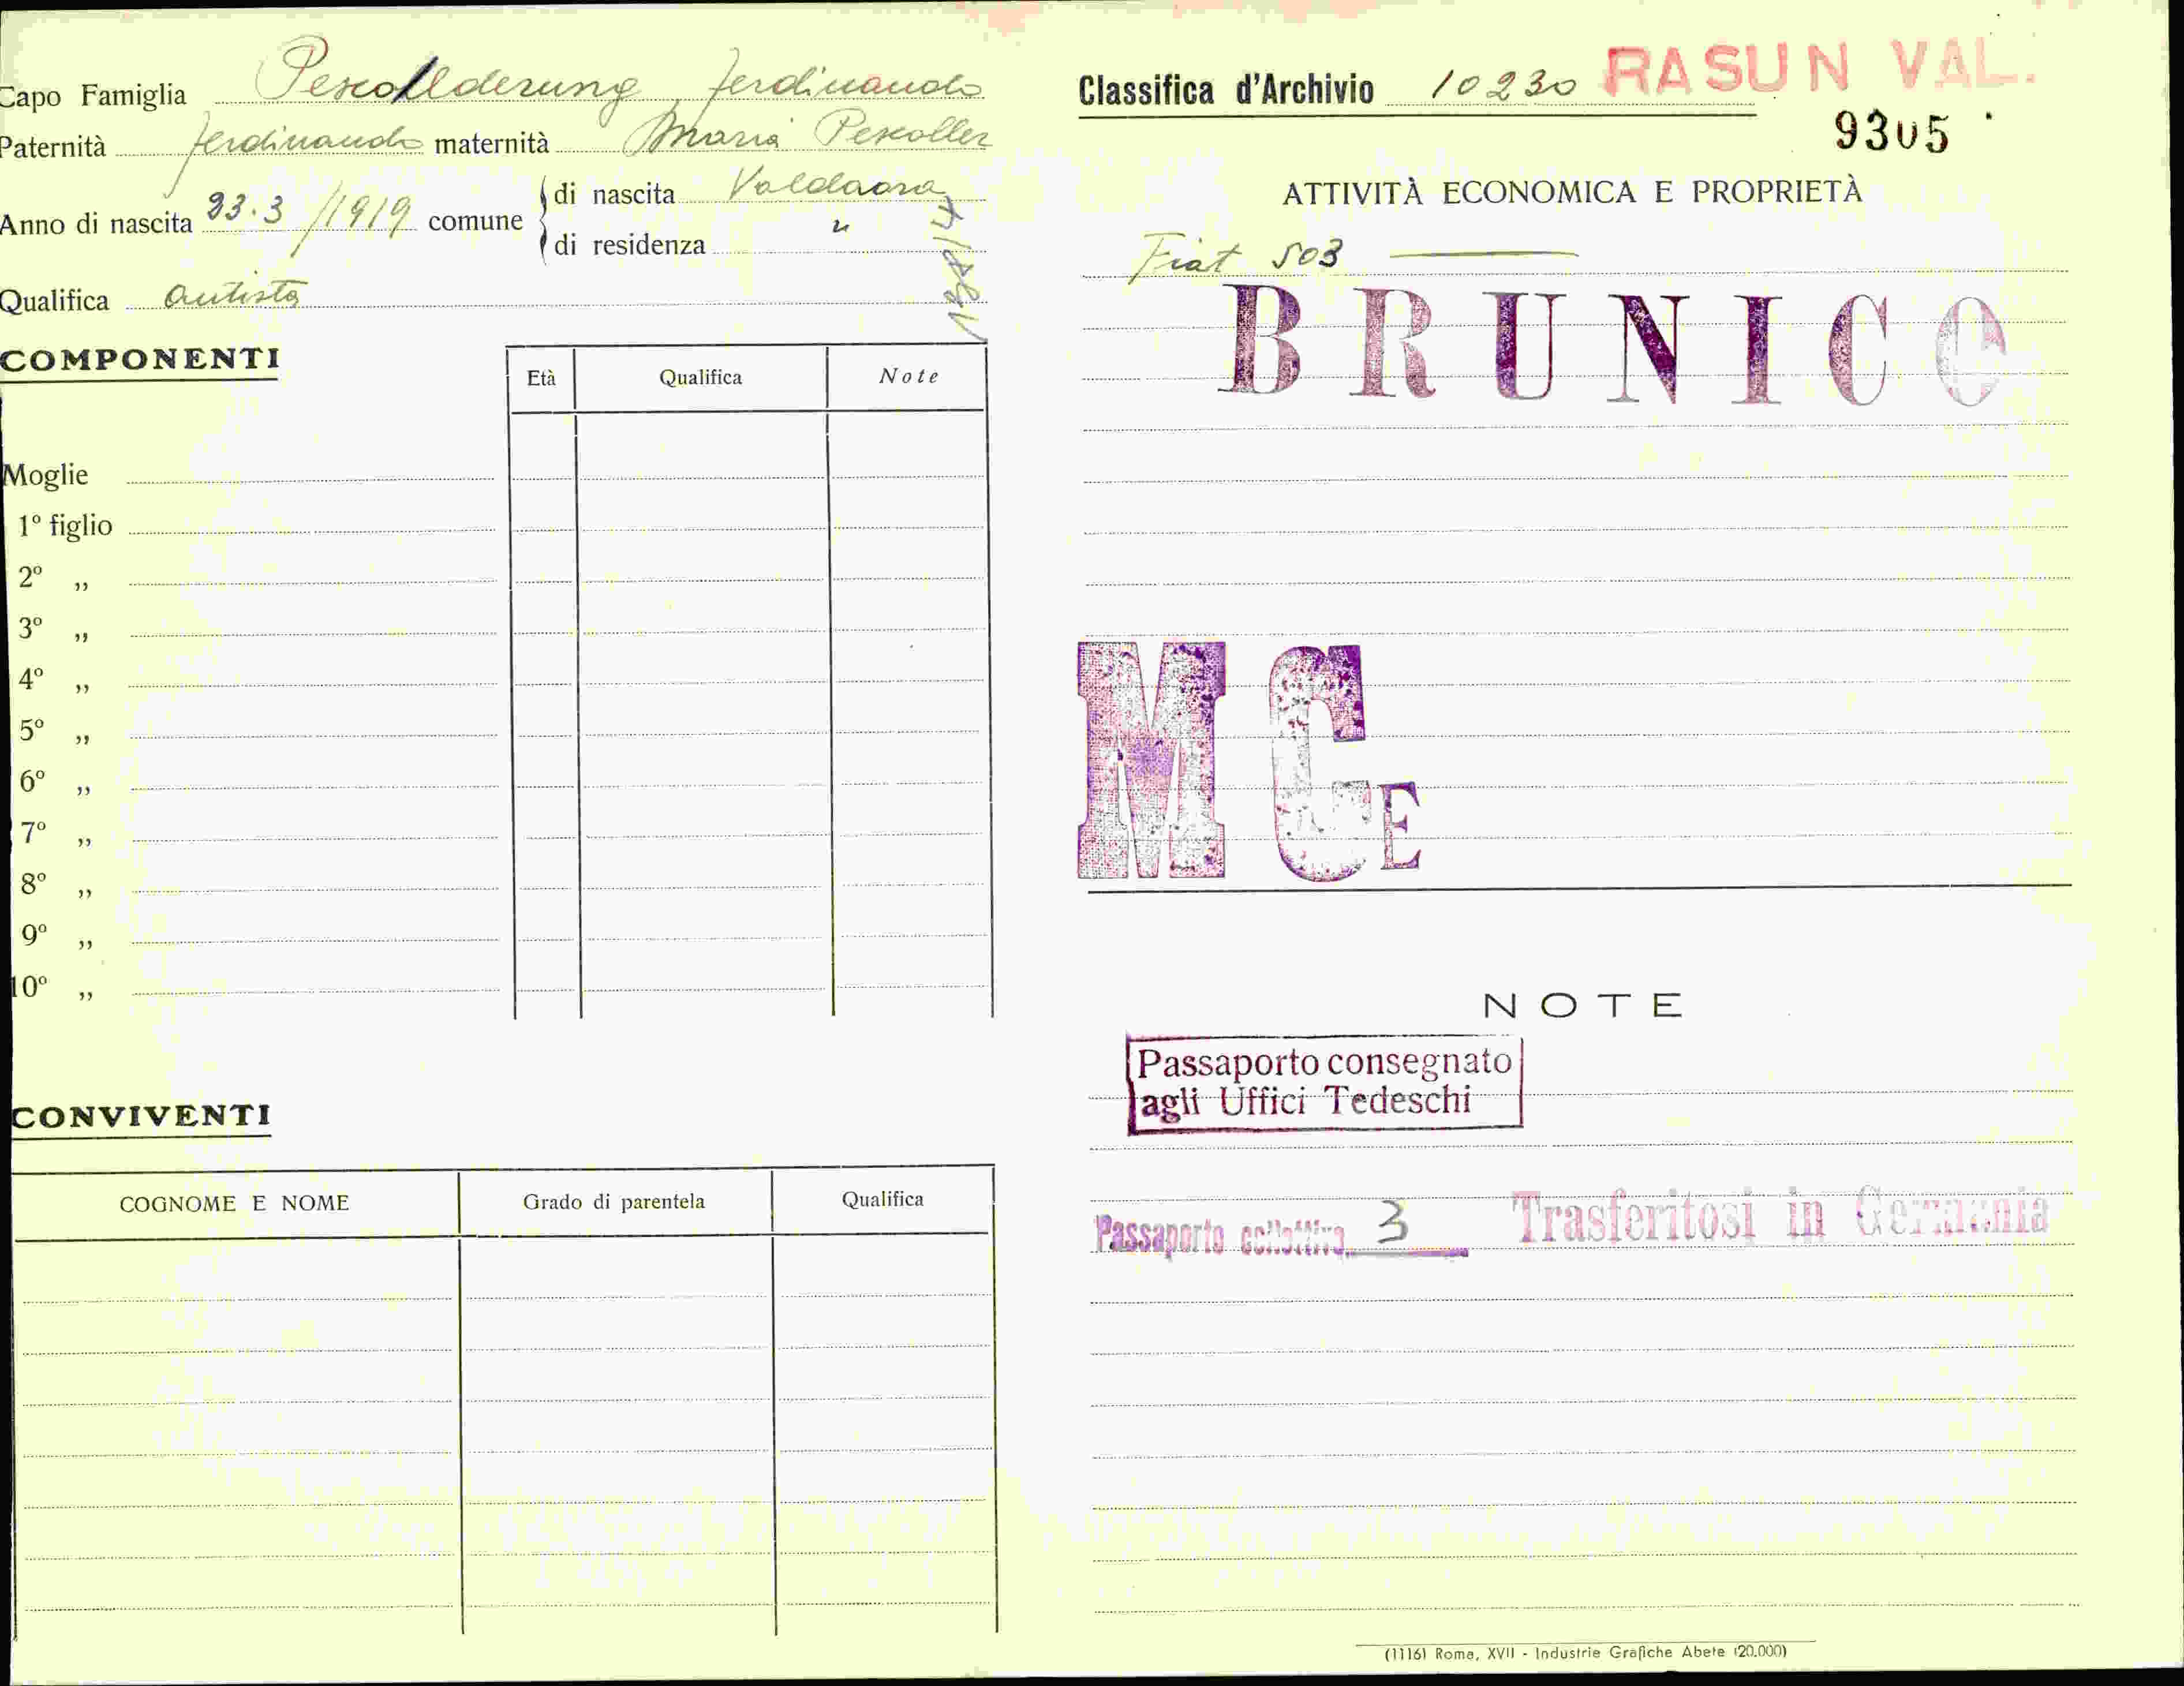 Capo Famiglia Pescollderung Ferdinando
Paternità Ferdinando maternità Maria Pescoller
Anno di nascita 23.3/1919 comune
di nascita Valdaora
di residenza "
Qualifica autista
COMPONENTI
Età Qualifica Note
Moglie
1º figlio
2º ,,
3º ,,
4º ,,
5º ,,
6º ,,
7º ,,
8º ,,
9º ,,
10º ,,
CONVIVENTI
COGNOME E NOME Grado di parentela Qualifica
Classifica d'Archivio 10230 RASUN VAL.
9305
ATTIVITÀ ECONOMICA E PROPRIETÀ
Fiat 503
BRUNICO
MCE
NOTE
Passaporto consegnato
agli Uffici Tedeschi
Passaporto collettivo 3 Trasferitosi in Germania
(1116) Roma, XVII - Industrie Grafiche Abete (20.000)